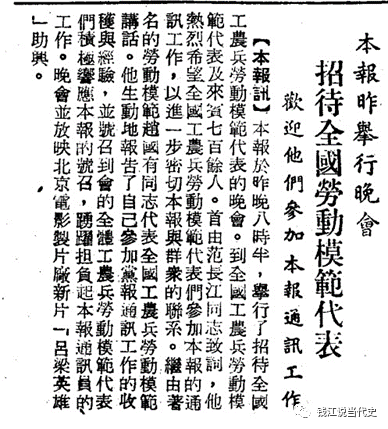 本報昨舉行晚會
招待全國勞動模範代表
歡迎他們參加本報通訊工作
【本報訊】本報於昨晚八時半，舉行了招待全國
工農兵勞動模範代表的晚會。到全國工農兵勞動模
範代表及來賓七百餘人。首由范長江同志致詞，他
熱烈希望全國工農兵勞動模範代表們參加本報的通
訊工作，以進一步密切本報與群衆的聯系。繼由著
名的勞動模範趙國有同志代表全國工農兵勞動模範
講話。他生動地報告了自己參加黨報通訊工作的收
穫與經驗，並號召到會的全體工農兵勞動模範代表
們積極響應本報的號召，踴躍担負起本報通訊員的
工作。晚會並放映北京電影製片廠新片「呂梁英雄
」助興。
钱江说当代史